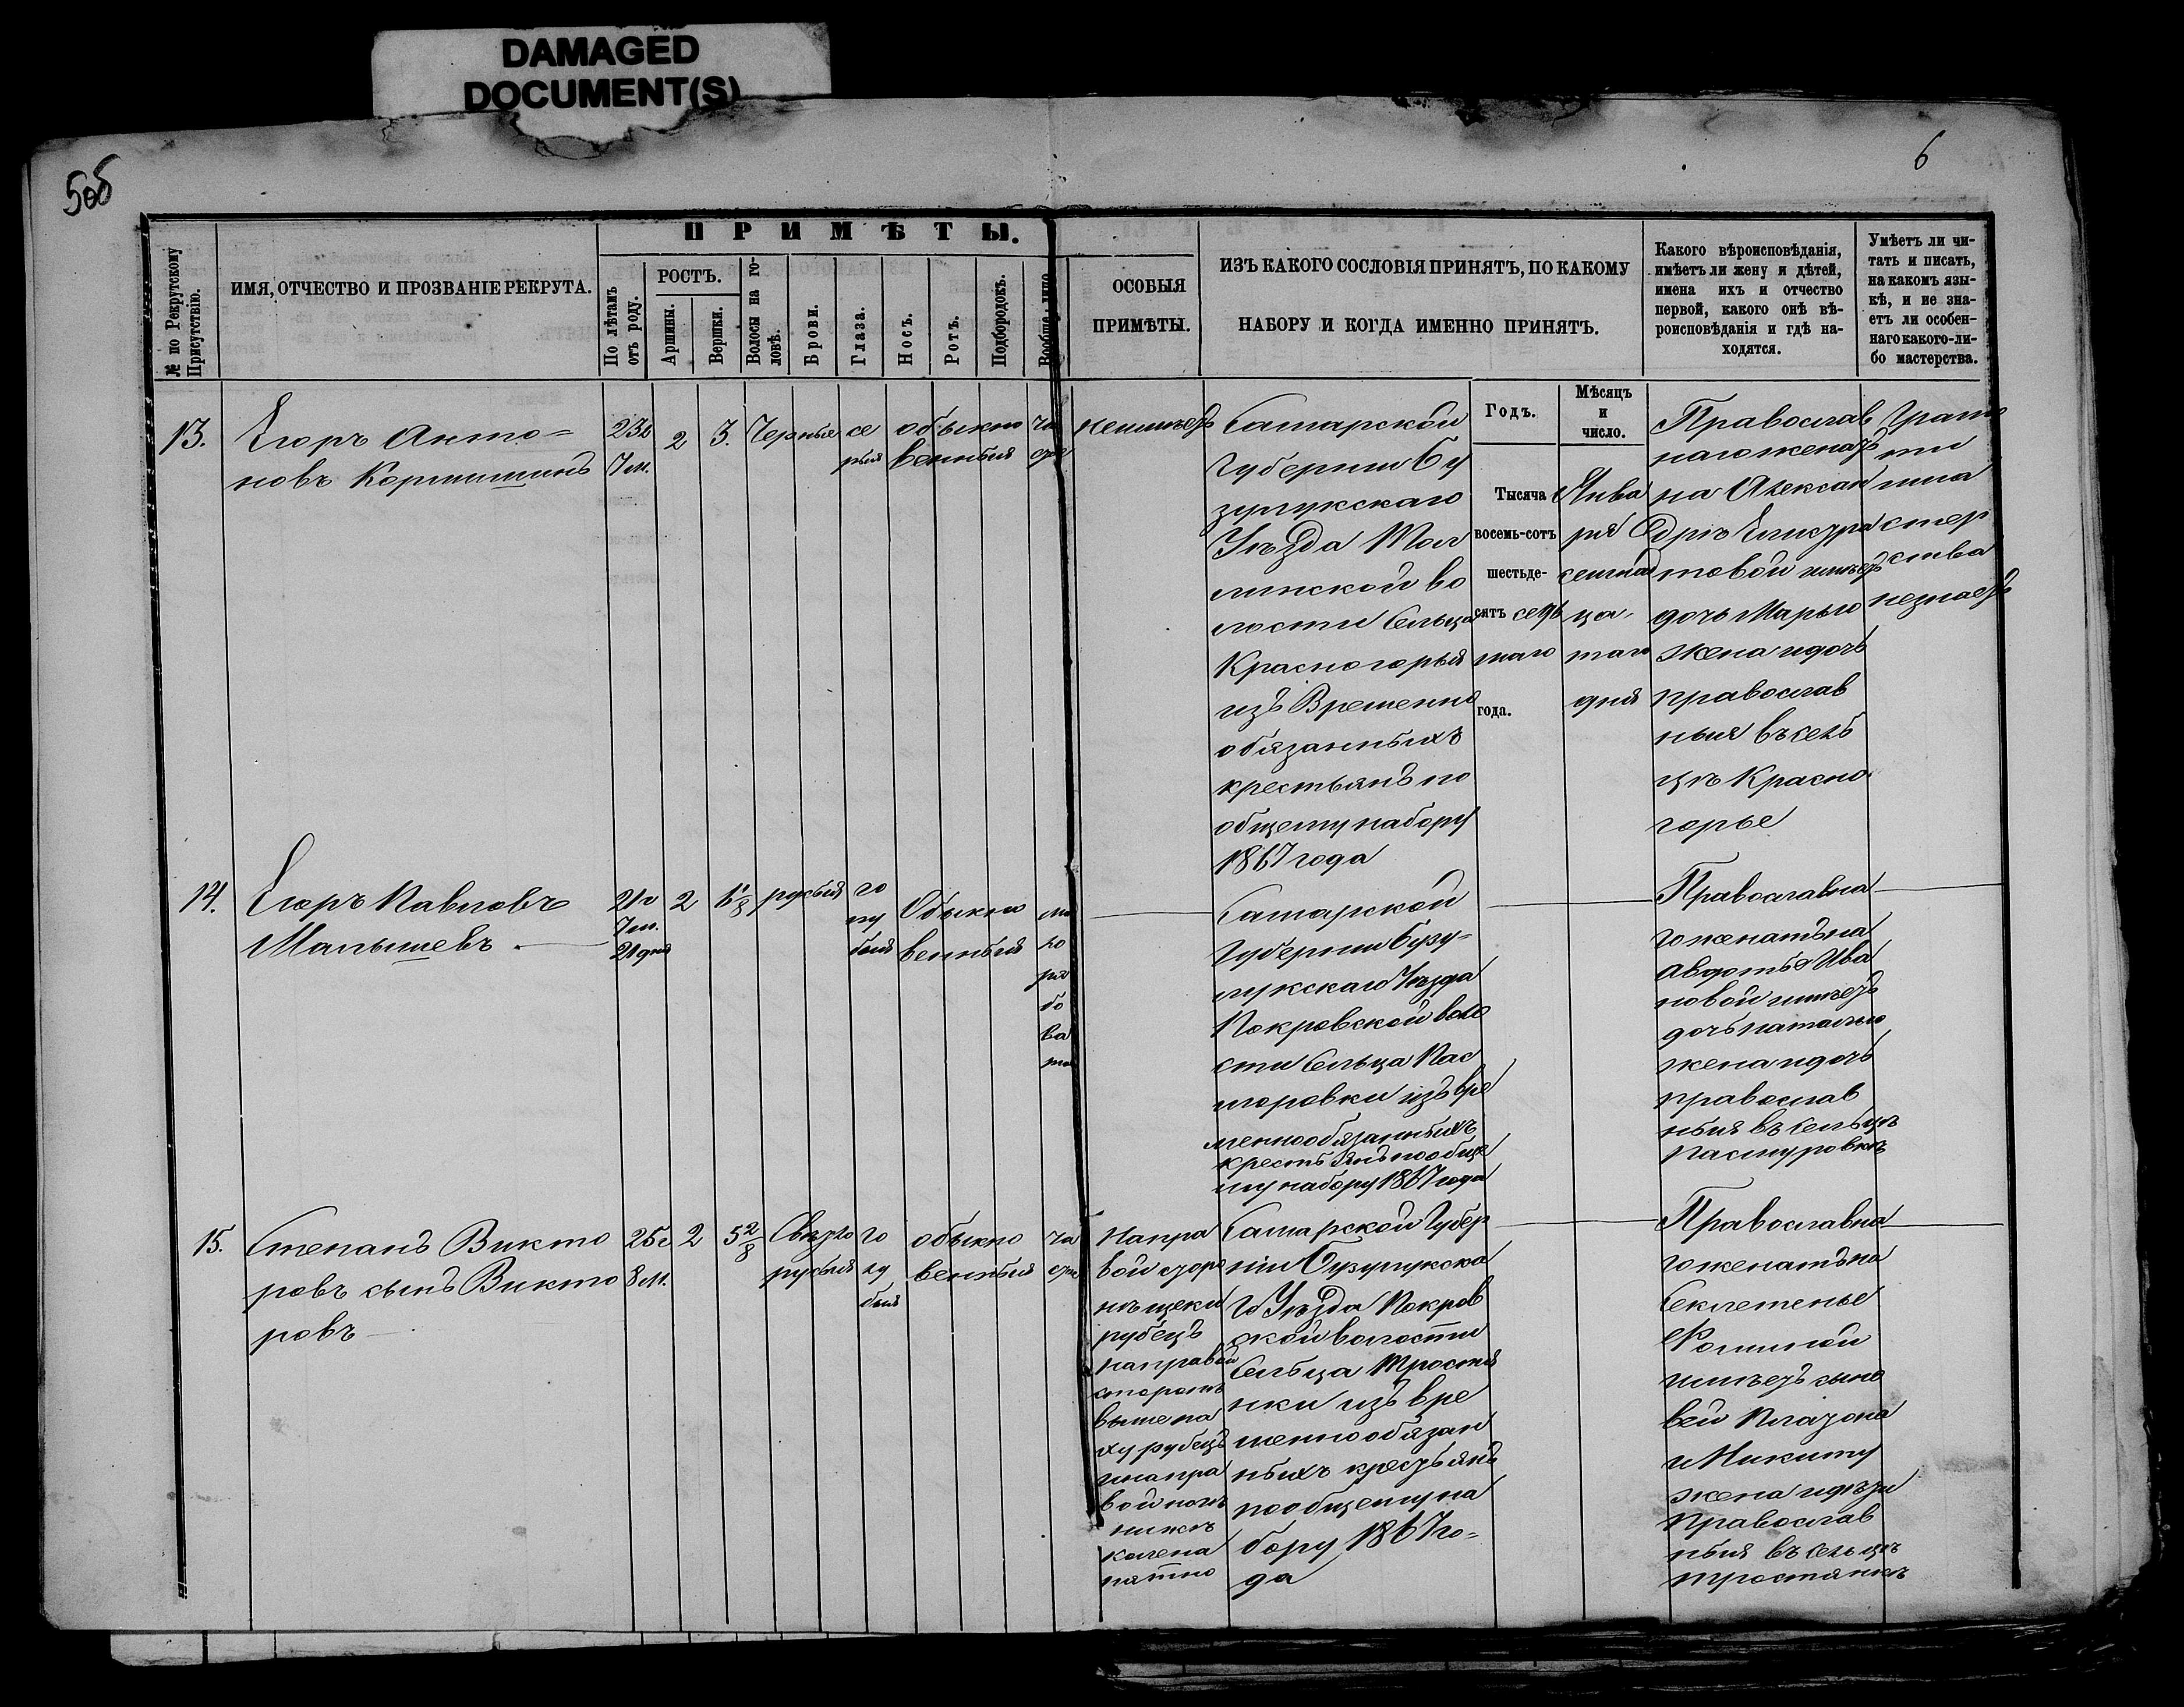 DAMAGED
DOCUMENT(S)
5об
6
№ по Рекрутскому
Присутствію.
ИМЯ, ОТЧЕСТВО И ПРОЗВАНІЕ РЕКРУТА.
ПРИМѢТЫ.
По лѣтамъ
отъ роду.
РОСТЪ.
Аршины.
Вершки.
Волосы на го-
ловѣ.
Брови.
Глаза.
Носъ.
Ротъ.
Подбородокъ.
Вообще лицо
ОСОБЫЯ
ПРИМѢТЫ.
ИЗЪ КАКОГО СОСЛОВІЯ ПРИНЯТЪ, ПО КАКОМУ
НАБОРУ И КОГДА ИМЕННО ПРИНЯТЪ.
Какого вѣроисповѣданія,
имѣетъ ли жену и дѣтей,
имена ихъ и отчество
первой, какого онѣ вѣ-
роисповѣданія и гдѣ на-
ходятся.
Умѣетъ ли чи-
тать и писать,
на какомъ язы-
кѣ, и не зна-
етъ ли особен-
наго какого-ли-
бо мастерства.
13.
Егоръ Анто=
новъ
23
7 м.
2
3.
Черные
се
рыя
обыкно
венныя
чи
стое
неимѣетъ
Самарской
Губерніи Бу
зулукскаго
Уѣзда
линской во
лости Сельца
Красногорья
изъ Временно
обязанныхъ
крестьянъ по
общему набору
1867 года
Годъ.
Тысяча
восемь-сотъ
шестьде-
сятъ седь
маго
года.
Мѣсяцъ
и
число.
Янва
ря
семнад
ца-
таго
дня
Православ
наго женатъ
на Алексан
дрѣ
товой имѣетъ
дочь Марью
жена и дочь
православ
ныя въ сель
цѣ Красно
горье
Грамо
ти
ма
стер
ства
незнаетъ
14.
Егоръ Павловъ
Малышевъ
21
7 м.
21 дня
2
1/8
русыя
го
лу
быя
Обыкно
венныя
ко
ря
бо
ва
то
Самарской
Губерніи Бузу=
лукскаго Уѣзда
Покровской воло
сти Сельца Пас
моровки изъ вре
меннообязанныхъ
крестьянъ по обще
му набору 1867 года
Православна
го женатъ на
Авдотьѣ Ива
новой имѣетъ
дочь Наталью
жена и дочь
православ
ныя въ сельцѣ
Пасмуровкѣ
15.
Степанъ Викто
ровъ сынъ Викто
ровъ
25 г
8 м.
2
5 2/8
Свѣтло
русыя
го
лу
быя
обыкно
венныя
чи
стое
На пра
вой сторо
нѣ щеки
рубецъ
на правой
сторонѣ
выше па
ху рубецъ
и на пра
вой ногѣ
ниже
колена
пятно
Самарской Губер
ніи Бузулукска
го Уѣзда Покров
ской волости
Сельца Тростя
нки изъ вре
меннообязан
ныхъ крестьянъ
по общему на
бору 1867 го=
да
Православна
го женатъ на
Фоминой
имѣетъ сыно
вей Платона
и Никиту
жена и дѣти
Православ
ныя въ сельцѣ
Тростянкѣ